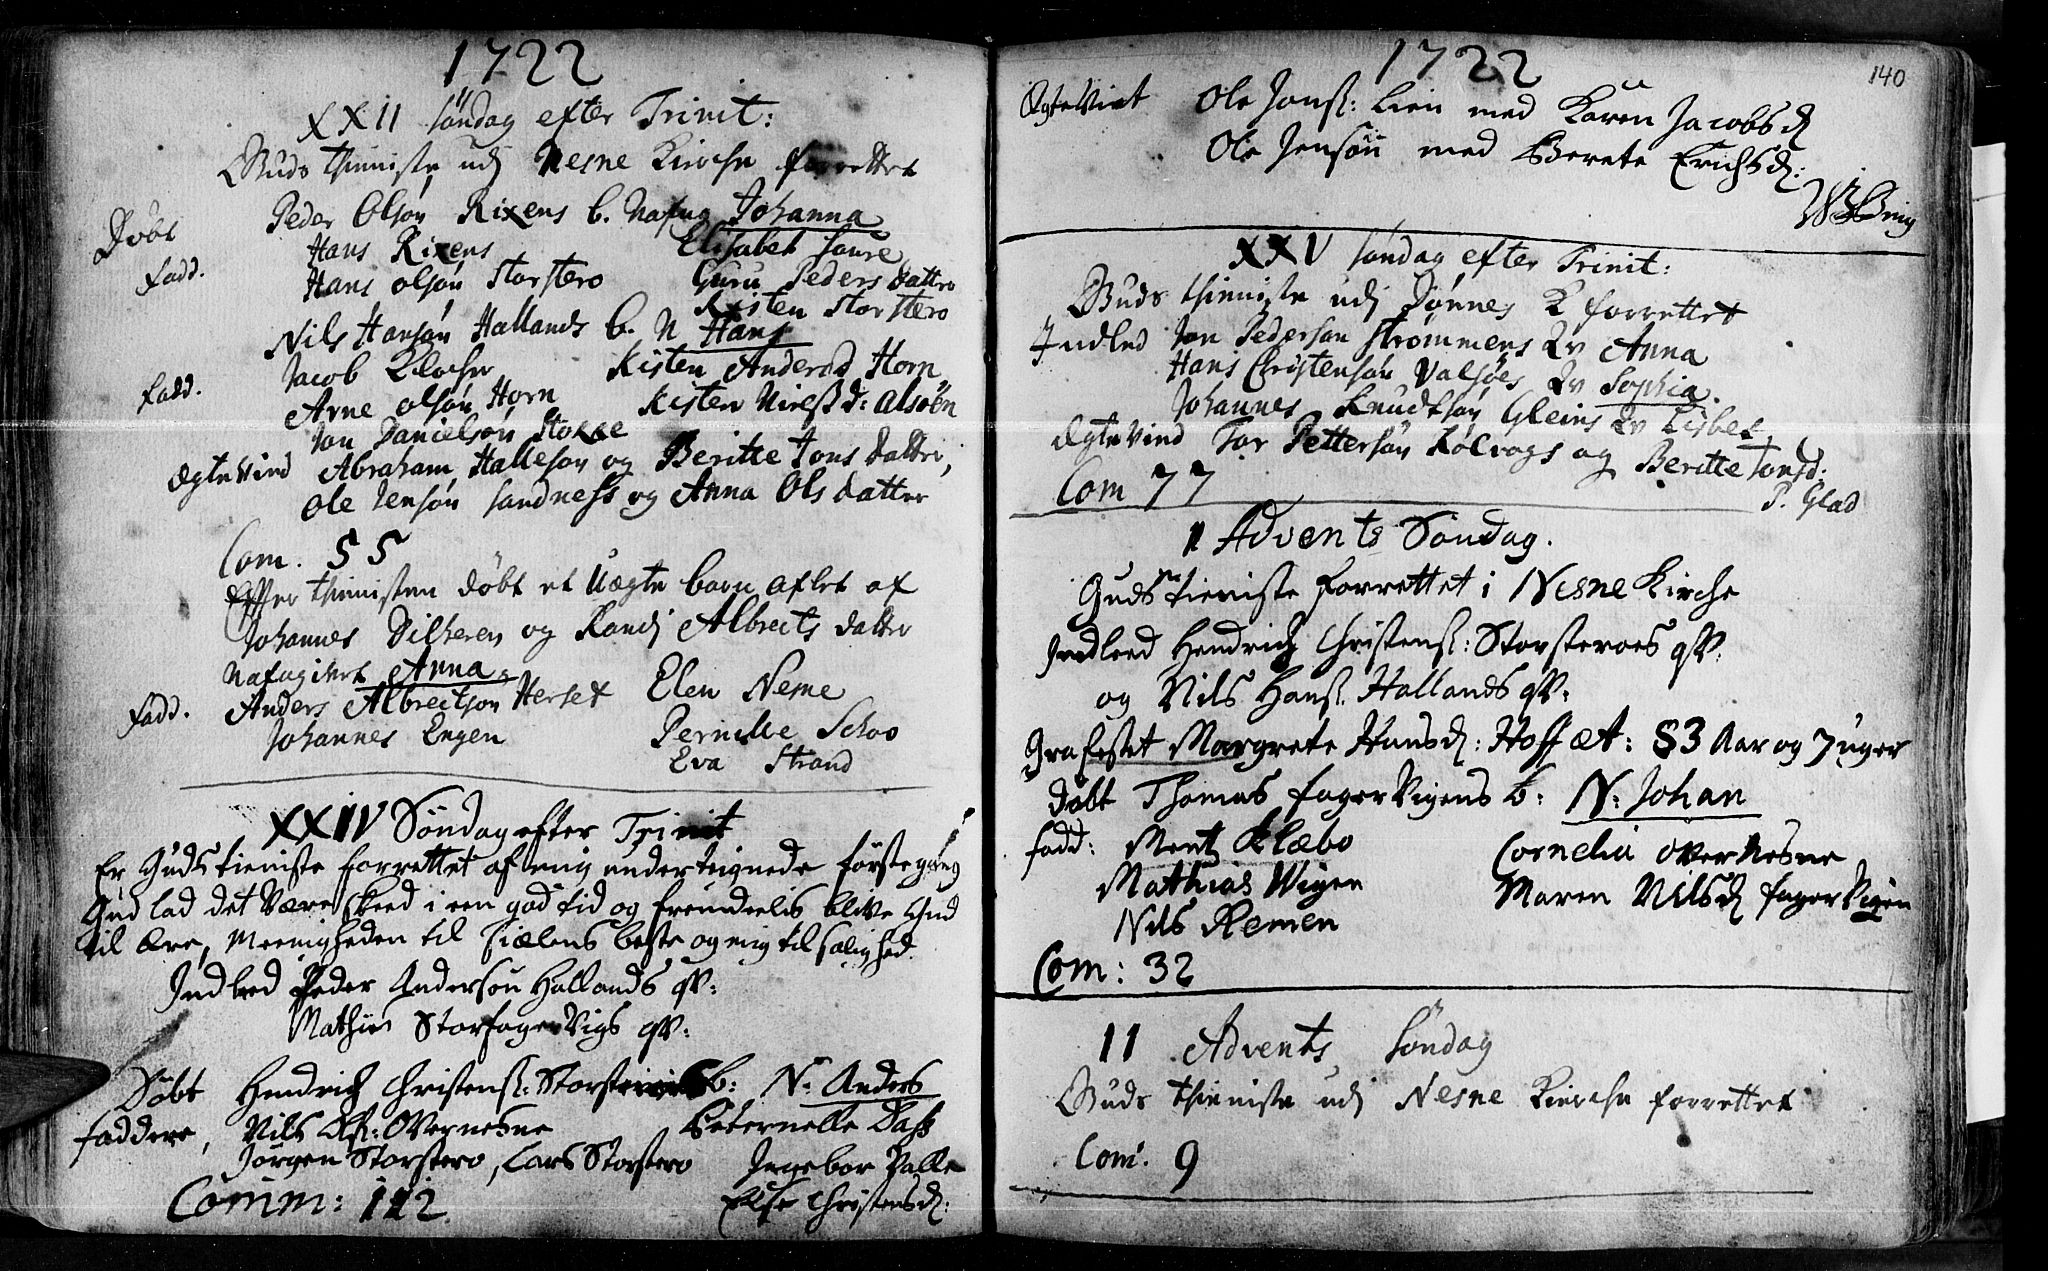 1722
XXII Søndag efter Trinit:
Guds thieniste udj Nesne Kirche forrettet
Døbt Peder Olsøn Rixens b. Nafng Johanna
Fadd. Hans Rixens Elisabet
Hans olsøn Storstero Guru Peders datter
Kisten Storstero
Nils Hansøn Hallands b. N Hans
Fadd. Jacob Klocher Kisten Andersd Horn
Arne olsøn Horn Kisten Nilsß d: alsøen
Jon Danielsøn Stokke
ægte vied Abraham Hallesøn og Beritte Jons datter,
Ole Jensøn Sandness og Anna Ols datter
Com. 55
Effter thienisten døbt et Uægte barn aflet af
Johannes og Randj Albreits datter
Nafngivet Anna
Fadd. Anders Albreitsøn Herset Elen Nesne
Johannes Engen Pernille Schoo
Eva Strand
XXIV Søndag efter Trinit
Er Guds tieniste forrettet af mig underteignede første gang
Gud lad det være skeed i een god tid og fremdeelis blive Gud
til ære, Meenigheden til siælens beste og mig til salighed.
Indleed Peder Andersøn Hallands qv:
Mathies Storfagervigs qv:
Døbt Hendrich Christensß: b: N: Anders
faddere, Nils Olß: Overnesne Peternelle Dass
Jørgen Storstero, Lars Storstero Ingebor Zalle
Comm: 112 Else Christensd:
1722
140
Ægte Viet Ole Jonß: Lien med Karen Jacobsd
Ole Jensøn med Berete Erichsd:
XXV Søndag efter Trinit:
Guds thieniste udj Dønnes K forrettet
Indled Jon Pedersøn Strømmens Qv Anna
Hans Christensøn Valsøes Qv Sophia.
Johannes Knudtsøn Gleins Qv Lisbet
ægte vied Tor Pettersøn Kolvogs og Beritte Jonsd:
Com 77 P. Glad
1 Advents Søndag.
Guds tieniste forrettet i Nesne Kirche
Indleed Hendrich Christensß: Storsteroes qv:
og Nils Hansß. Hallands qv:
Grafestet Margrete Hansd: Hoff æt: 83 Aar og 7 uger
døbt Thomas fagerVigens b: N: Johan
fadd: Mentz Klæbo Cornelia overnesne
Mathias Wigen Maren Nilsd fagerVigen
Nils Remen
Com: 32
11 Advents Søndag
Guds thieniste udj Nesne Kirche forrettet
Com. 9